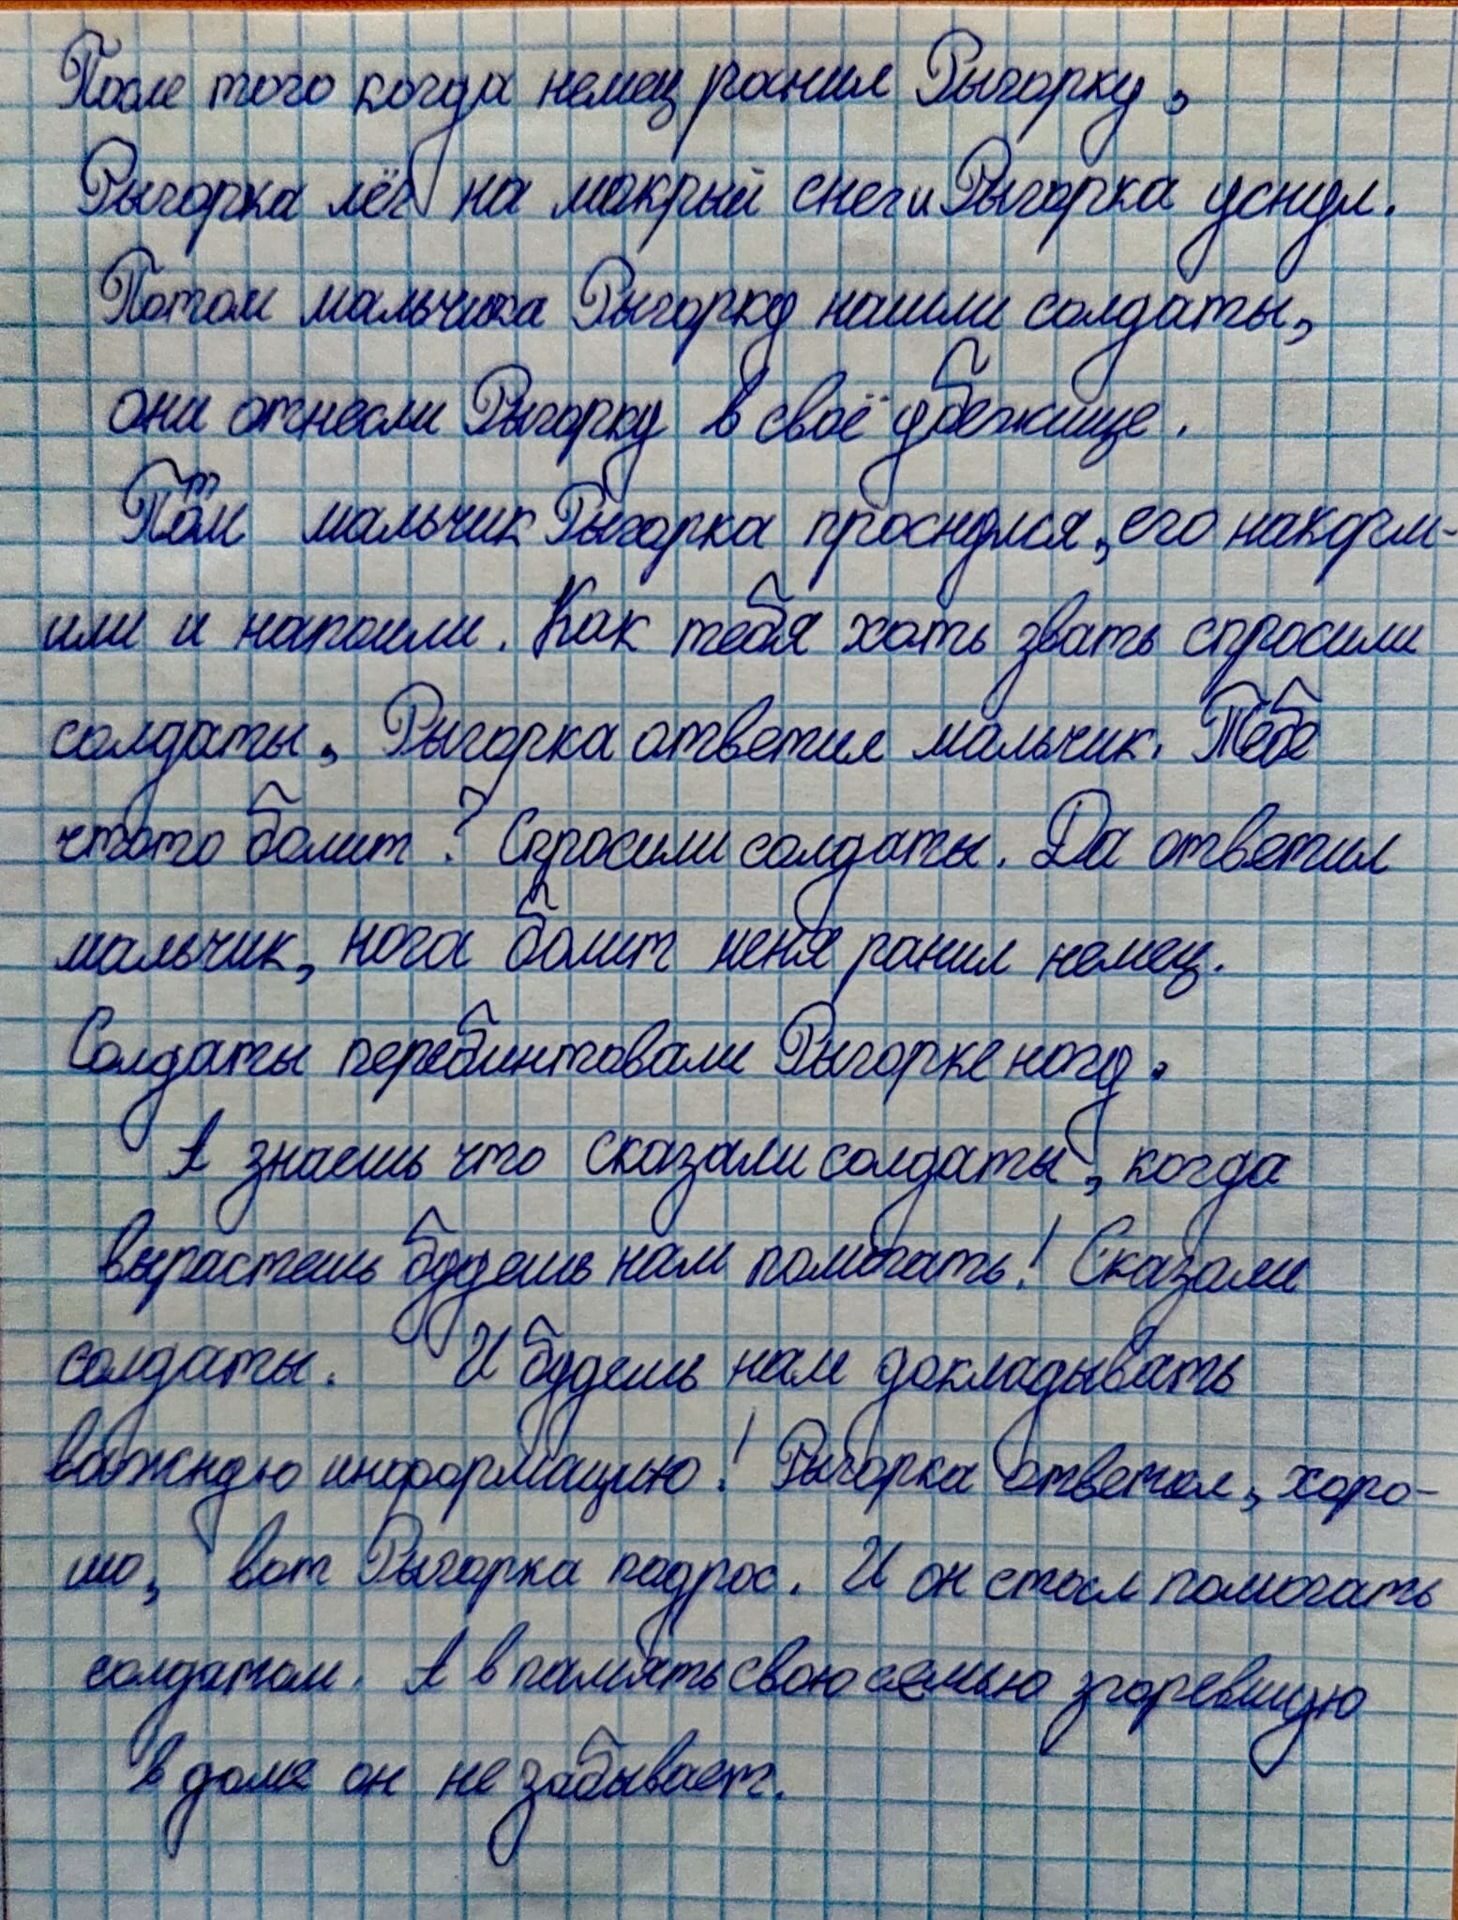 После того когда немец ранил Рыгорку,
Рыгорка лёг на мокрый снег и Рыгорка уснул.
Потом мальчика Рыгорку нашли солдаты,
они отнесли Рыгорку в своё убежище.
Потом мальчик Рыгорка проснулся, его накорм-
или и напоили. Как тебя хоть звать спросили
солдаты, Рыгорка ответил мальчик. Тебе
чтото болит? Спросили солдаты. Да ответил
мальчик, нога болит меня ранил немец.
Солдаты перебинтовали Рыгорке ногу.
А знаешь что сказали солдаты, когда
вырастешь будешь нам помогать! Сказали
солдаты. И будешь нам докладывать
важную информацию! Рыгорка ответил, хоро-
шо, вот Рыгорка падрос. И он стал помогать
солдатом. А в память свою семью згоревшую
в доме он не забывает.